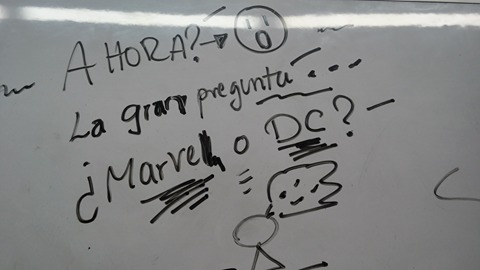 AHORA?
La gran pregunta...
¿Marvel o DC?